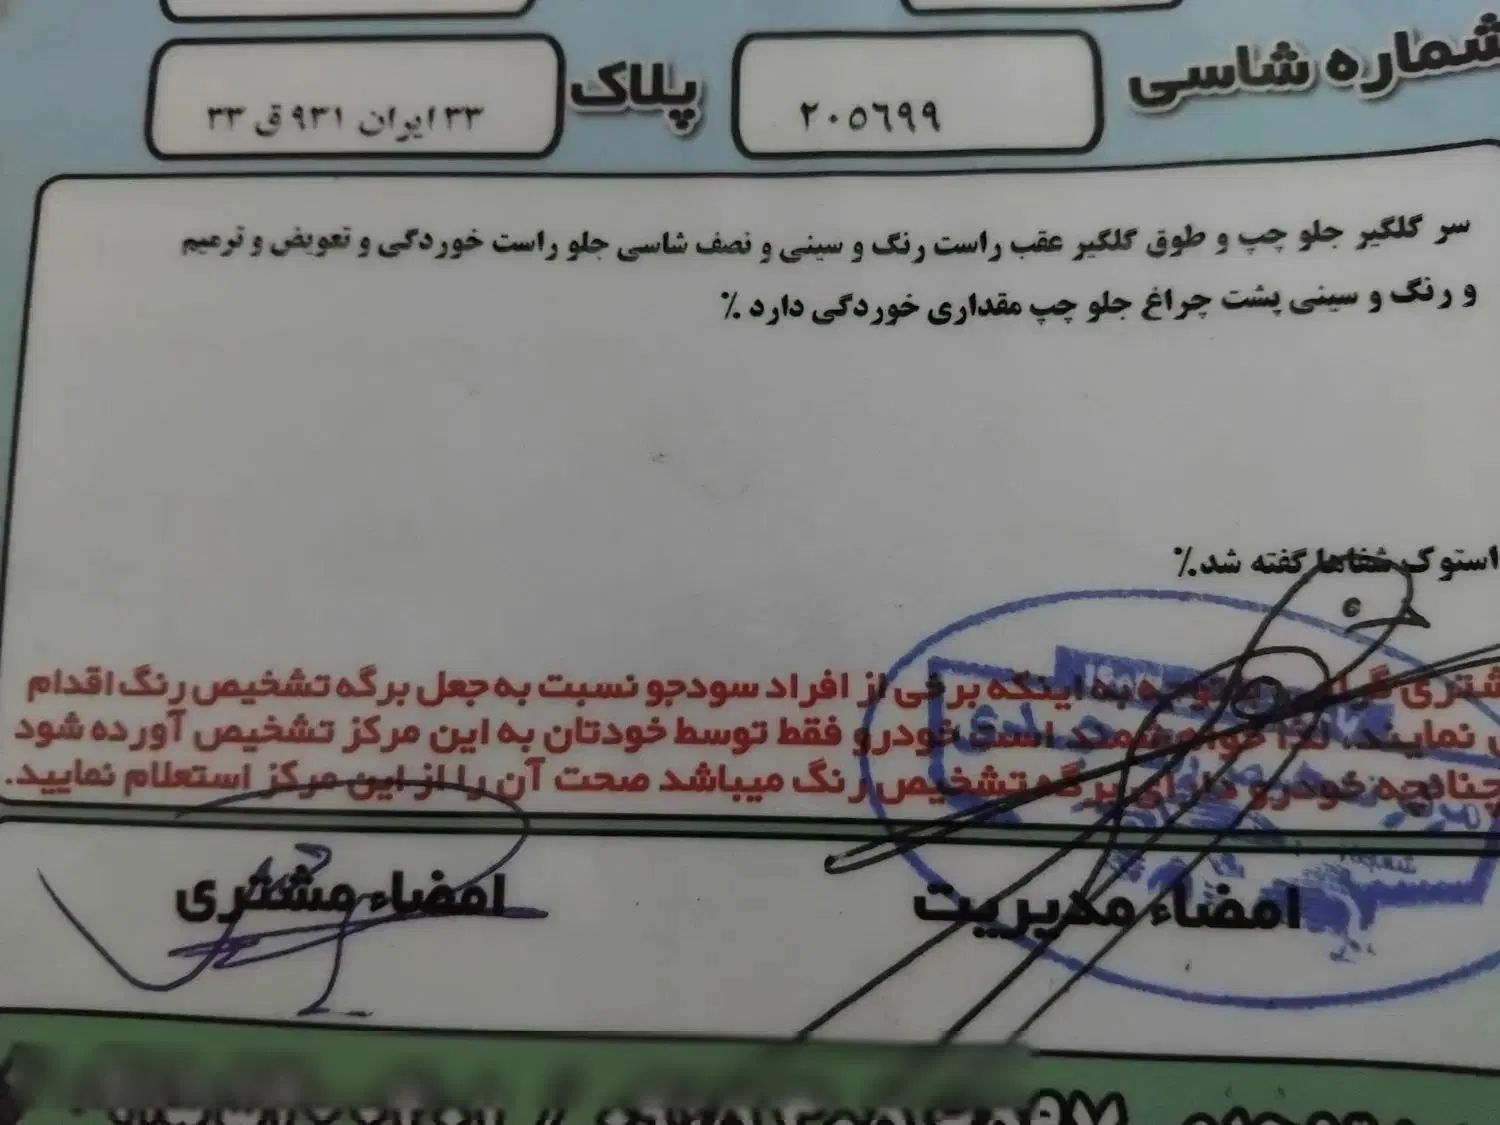 شماره شاسی
۲۰۵۶۹۹
پلاک
۳۳ ایران ۹۳۱ ق ۳۳
سر گلگیر جلو چپ و طوق گلگیر عقب راست رنگ و سینی و نصف شاسی جلو راست خوردگی و تعویض و ترمیم
و رنگ و سینی پشت چراغ جلو چپ مقداری خوردگی دارد ٪
استوک شفاها گفته شد٪
توجه به اینکه برخی از افراد سودجو نسبت به جعل برگه تشخیص رنگ اقدام
نمایند، لذا خواهشمند است خودرو فقط توسط خودتان به این مرکز تشخیص آورده شود
چنانچه خودرو دارای برگه تشخیص رنگ میباشد صحت آن را از این مرکز استعلام نمایید.
امضاء مدیریت
امضاء مشتری